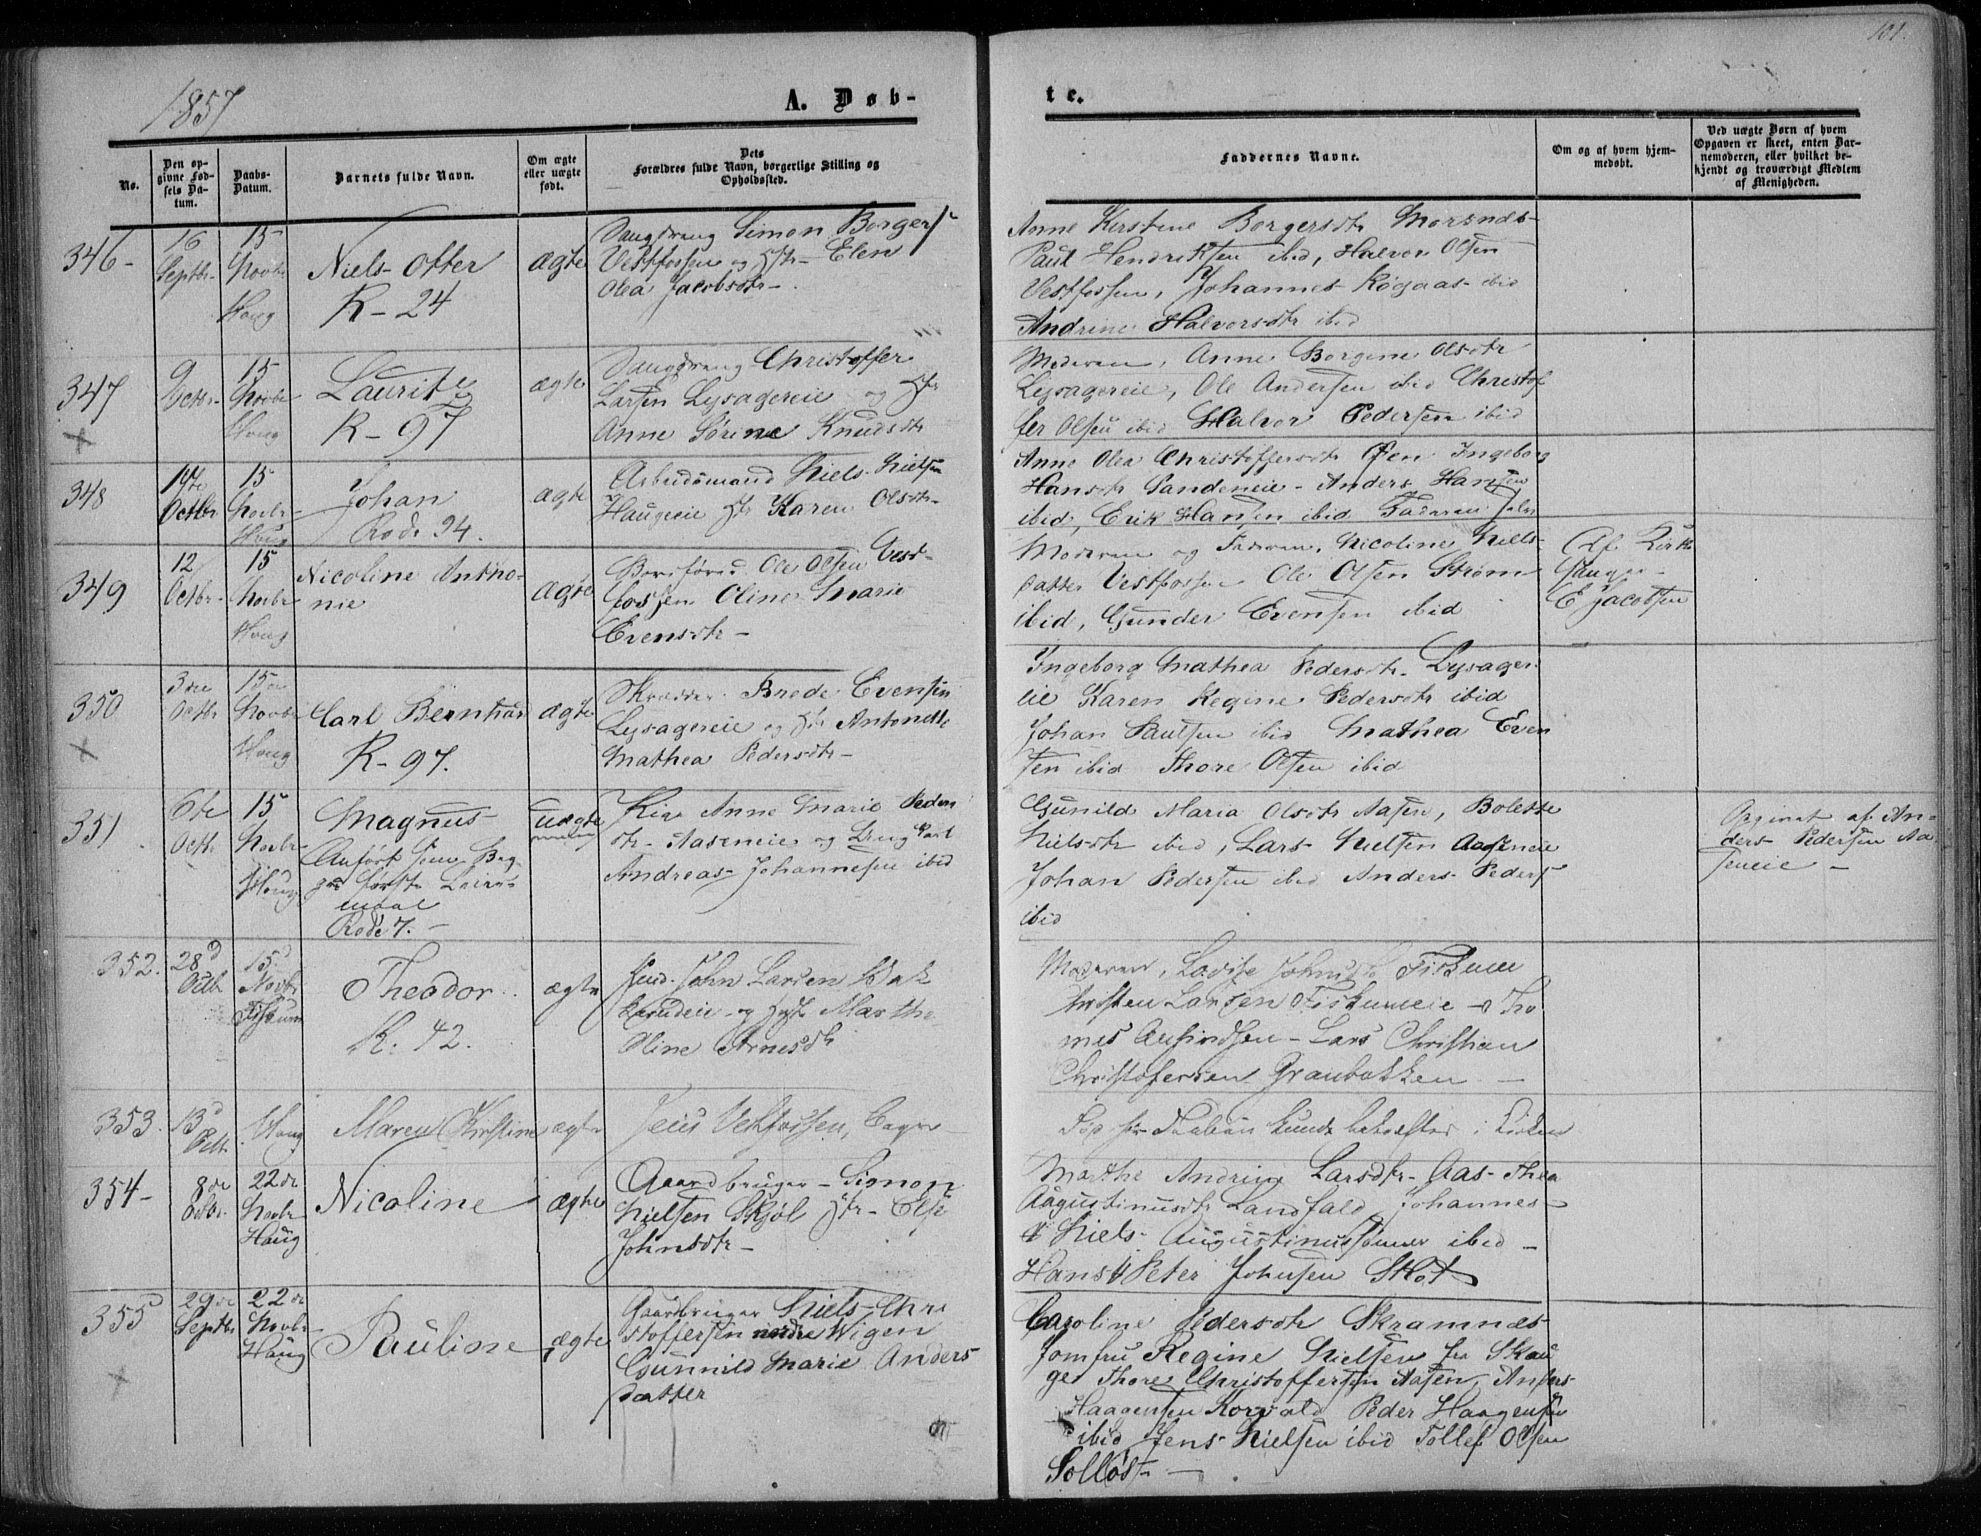 1857
A. Døb-
te.
101.
No.
Den op-
givne Fød-
sels Da-
tum.
Daabs-
Datum.
Barnets fulde Navn.
Om ægte
eller uægte
født.
Dets
Forældres fulde Navn, borgerlige Stilling og
Opholdssted.
Faddernes Navne.
Om og af hvem hjem-
medøbt.
Ved uægte Børn af hvem
Opgaven er skeet, enten Bar-
nemoderen, eller hvilket be-
kjendt og troværdigt Medlem
af Menigheden.
346-
16
Septbr
15
Novbr
Haug
Niels Otter
R-24
ægte
Simon Borgers
Vestfossen og Hstr- Elen
Olea Jacobsdtr-
Anne Kirstine Borgersdtr
Paul Hendriksen ibid, Halvor Olsen
Vestfossen, Johannes ibid
Andrine Halvorsdtr ibid
347
9
Octbr-
15
Novbr
Haug
Lauritz
R-97
ægte
Christoffer
Larsen Lysagereie og Hstr
Anne Sørine Knudsdtr
Moderen, Anne Borgine Olsdtr
Lysagereie, Ole Andersen ibid Christof
fer Olsen ibid Halvor Pedersen ibid
348
14de
Octbr
15
Novbr-
Haug
Johan
Rode 94.
ægte
Arbeidsmand Niels Nielsen
Haugeie Hstr Karen Olsdtr-
Anne Olea Christoffersdtr Ingeborg
Hansdtr - Anders Hansen
ibid, Erik Hansen ibid Faderen selv
349
12
Octbr-
15
Novbr
Haug
Nicoline Antho-
nie
ægte
Ole Olsen Vest-
fossen Oline Marie
Evensdtr-
Moderen og Faderen, Nicoline Niels-
datter Vestfossen Ole Olsen Strøm
ibid, Gunder Evensen ibid
Af Kirke
sanger
E Jacobsen
350
3die
Octbr
15de
Novbr
Haug
Carl Bernhar
R-97.
ægte
Skrædder Brede Evensen
Lysagereie og Hstr Antonette
Mathea Pedersdtr-
Ingeborg Mathea Pedersdtr- Lysager-
eie Karen Regine Pedersdtr ibid
Johan Paulsen ibid Mathea Even
sen ibid Thore Olsen ibid
351
6te
Octbr
15
Novbr
Haug
Magnus
Anført som Beg
ges første Leier-
maal
Rode 7.-
uægte
Pige Anne Marie Peders
dtr- Aaseneie og Ungkarl
Andreas Johannesen ibid
Gunild Maria Olsdtr Aasen, Bolette
Nielsdtr ibid, Lars Nielsen Aaseneie
Johan Pedersen ibid Anders Peders
ibid
Opgivet af An-
ders Pedersen Aa
seneie-
352.
28d
Octb
15d
Novbr
Fiskum
Theodor.
K. 42.
ægte
John Larsen
og Hstr Marthe
Oline Arnesdtr
Moderen, Lovise Johnsdtr Fiskum
Christen Larsen Fiskumeie - Tho
mes - Lars Christian
Christofersen Graubakken-
353.
13d
Octb
Haug
Maren Kristine
ægte
Jens Vestfossen, Bager
i Kirken
354-
8de
Octbr.
22de
Novbr
Haug
Nicoline
ægte
Gaardbruger- Simon
Nielsen Skjøl Hstr- Else
Johnsdtr-
Marthe Andrine Larsdtr- Aas- Thea
Augustinusdtr Landfald Johannes-
& Niels Augustinussønner ibid-
Hans & Peter Johnsen
355
29de
Septbr
22de
Novbr-
Haug
Pauline
ægte
Gaardbruger Niels Chri
stoffersen nordre Wigen
Gunnild Marie Anders
datter
Caroline Pedersdtr Skramnæs
Jomfru Regine Nielsen fra Skau
ge Thore Christoffersen Aasen, Anders
Haagensen Korvald Peder Haagensen
ibid Jens Nielsen ibid Tollef Olsen